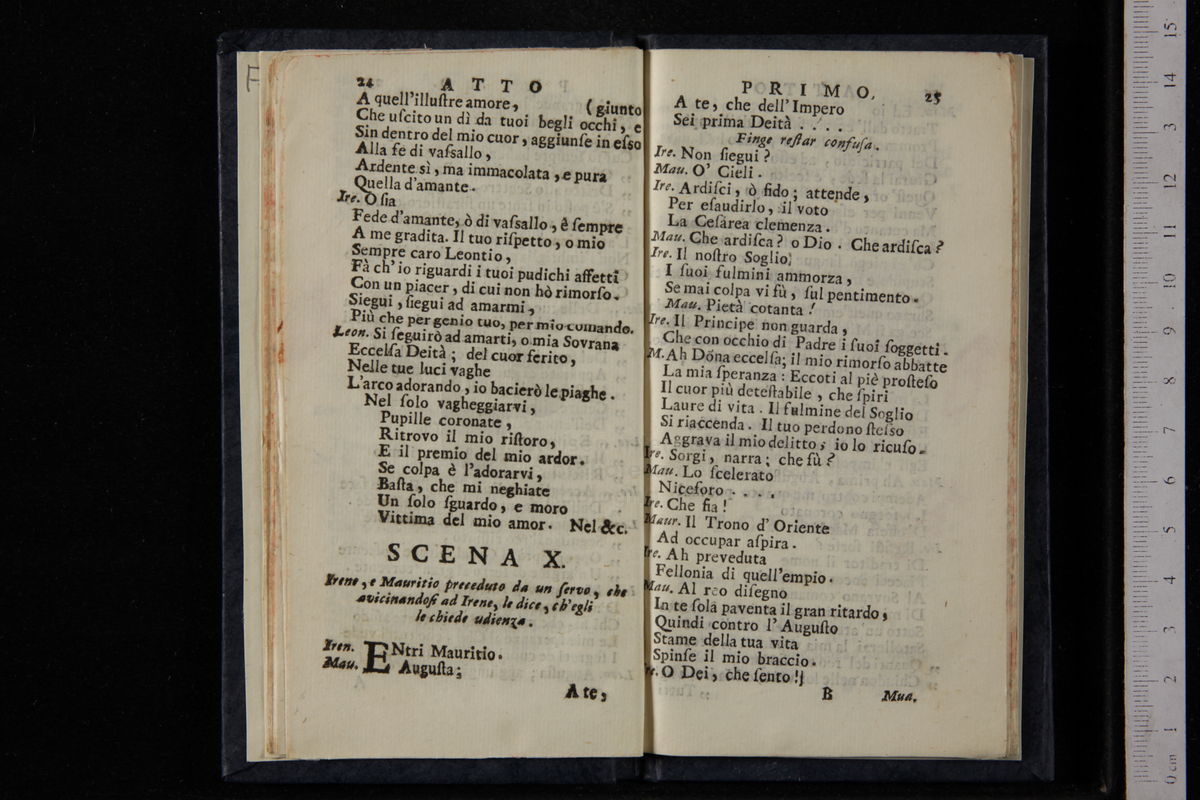 24 ATTO
A quell'illuſtre amore, (giunto
Che uſcito un dì da tuoi begli occhi, e
Sin dentro del mio cuor, aggiunſe in eſſo
Alla fe di vaſsallo,
Ardente sì, ma immacolata, e pura
Quella d'amante.
Ire. O ſia
Fede d'amante, ò di vaſsallo, è ſempre
A me gradita. Il tuo riſpetto, o mio
Sempre caro Leontio,
Fà ch'io riguardi i tuoi pudichi affetti
Con un piacer, di cui non hò rimorſo.
Siegui, ſiegui ad amarmi,
Più che per genio tuo, per mio comando.
Leon. Si ſeguirò ad amarti, o mia Sovrana
Eccelſa Deità; del cuor ferito,
Nelle tue luci vaghe
L'arco adorando, io bacierò le piaghe.
Nel ſolo vagheggiarvi,
Pupille coronate,
Ritrovo il mio riſtoro,
E il premio del mio ardor.
Se colpa è l'adorarvi,
Baſta, che mi neghiate
Un ſolo ſguardo, e moro
Vittima del mio amor. Nel &c.
SCENA X.
Irene, e Mauritio preceduto da un ſervo, che
avicinandoſi ad Irene, le dice, ch'egli
le chiede udienza.
Iren. ENtri Mauritio.
Mau. Auguſta;
A te,
PRIMO, 25
A te, che dell'Impero
Sei prima Deità . . . .
Finge reſtar confuſa.
Ire. Non ſiegui?
Mau. O' Cieli.
Ire. Ardiſci, ò fido; attende,
Per eſaudirlo, il voto
La Ceſàrea clemenza.
Mau. Che ardiſca? o Dio. Che ardiſca?
Ire. Il noſtro Soglio,
I ſuoi fulmini ammorza,
Se mai colpa vi fù, ſul pentimento.
Mau. Pietà cotanta!
Ire. Il Principe non guarda,
Che con occhio di Padre i ſuoi ſoggetti.
M. Ah Dōna eccelſa; il mio rimorſo abbatte
La mia ſperanza: Eccoti al piè proſteſo
Il cuor più deteſtabile, che ſpiri
Laure di vita. Il fulmine del Soglio
Si riaccenda. Il tuo perdono ſteſso
Aggrava il mio delitto; io lo ricuſo.
Ire. Sorgi, narra; che fù?
Mau. Lo ſcelerato
Niceforo . . . .
Ire. Che fia!
Maur. Il Trono d'Oriente
Ad occupar aſpira.
Ire. Ah preveduta
Fellonia di quell'empio.
Mau. Al reo diſegno
In te ſola paventa il gran ritardo,
Quindi contro l'Auguſto
Stame della tua vita
Spinſe il mio braccio.
Ire. O Dei, che ſento!
B Mua.
15
14
13
12
11
10
9
8
7
6
5
4
3
2
1
0 cm